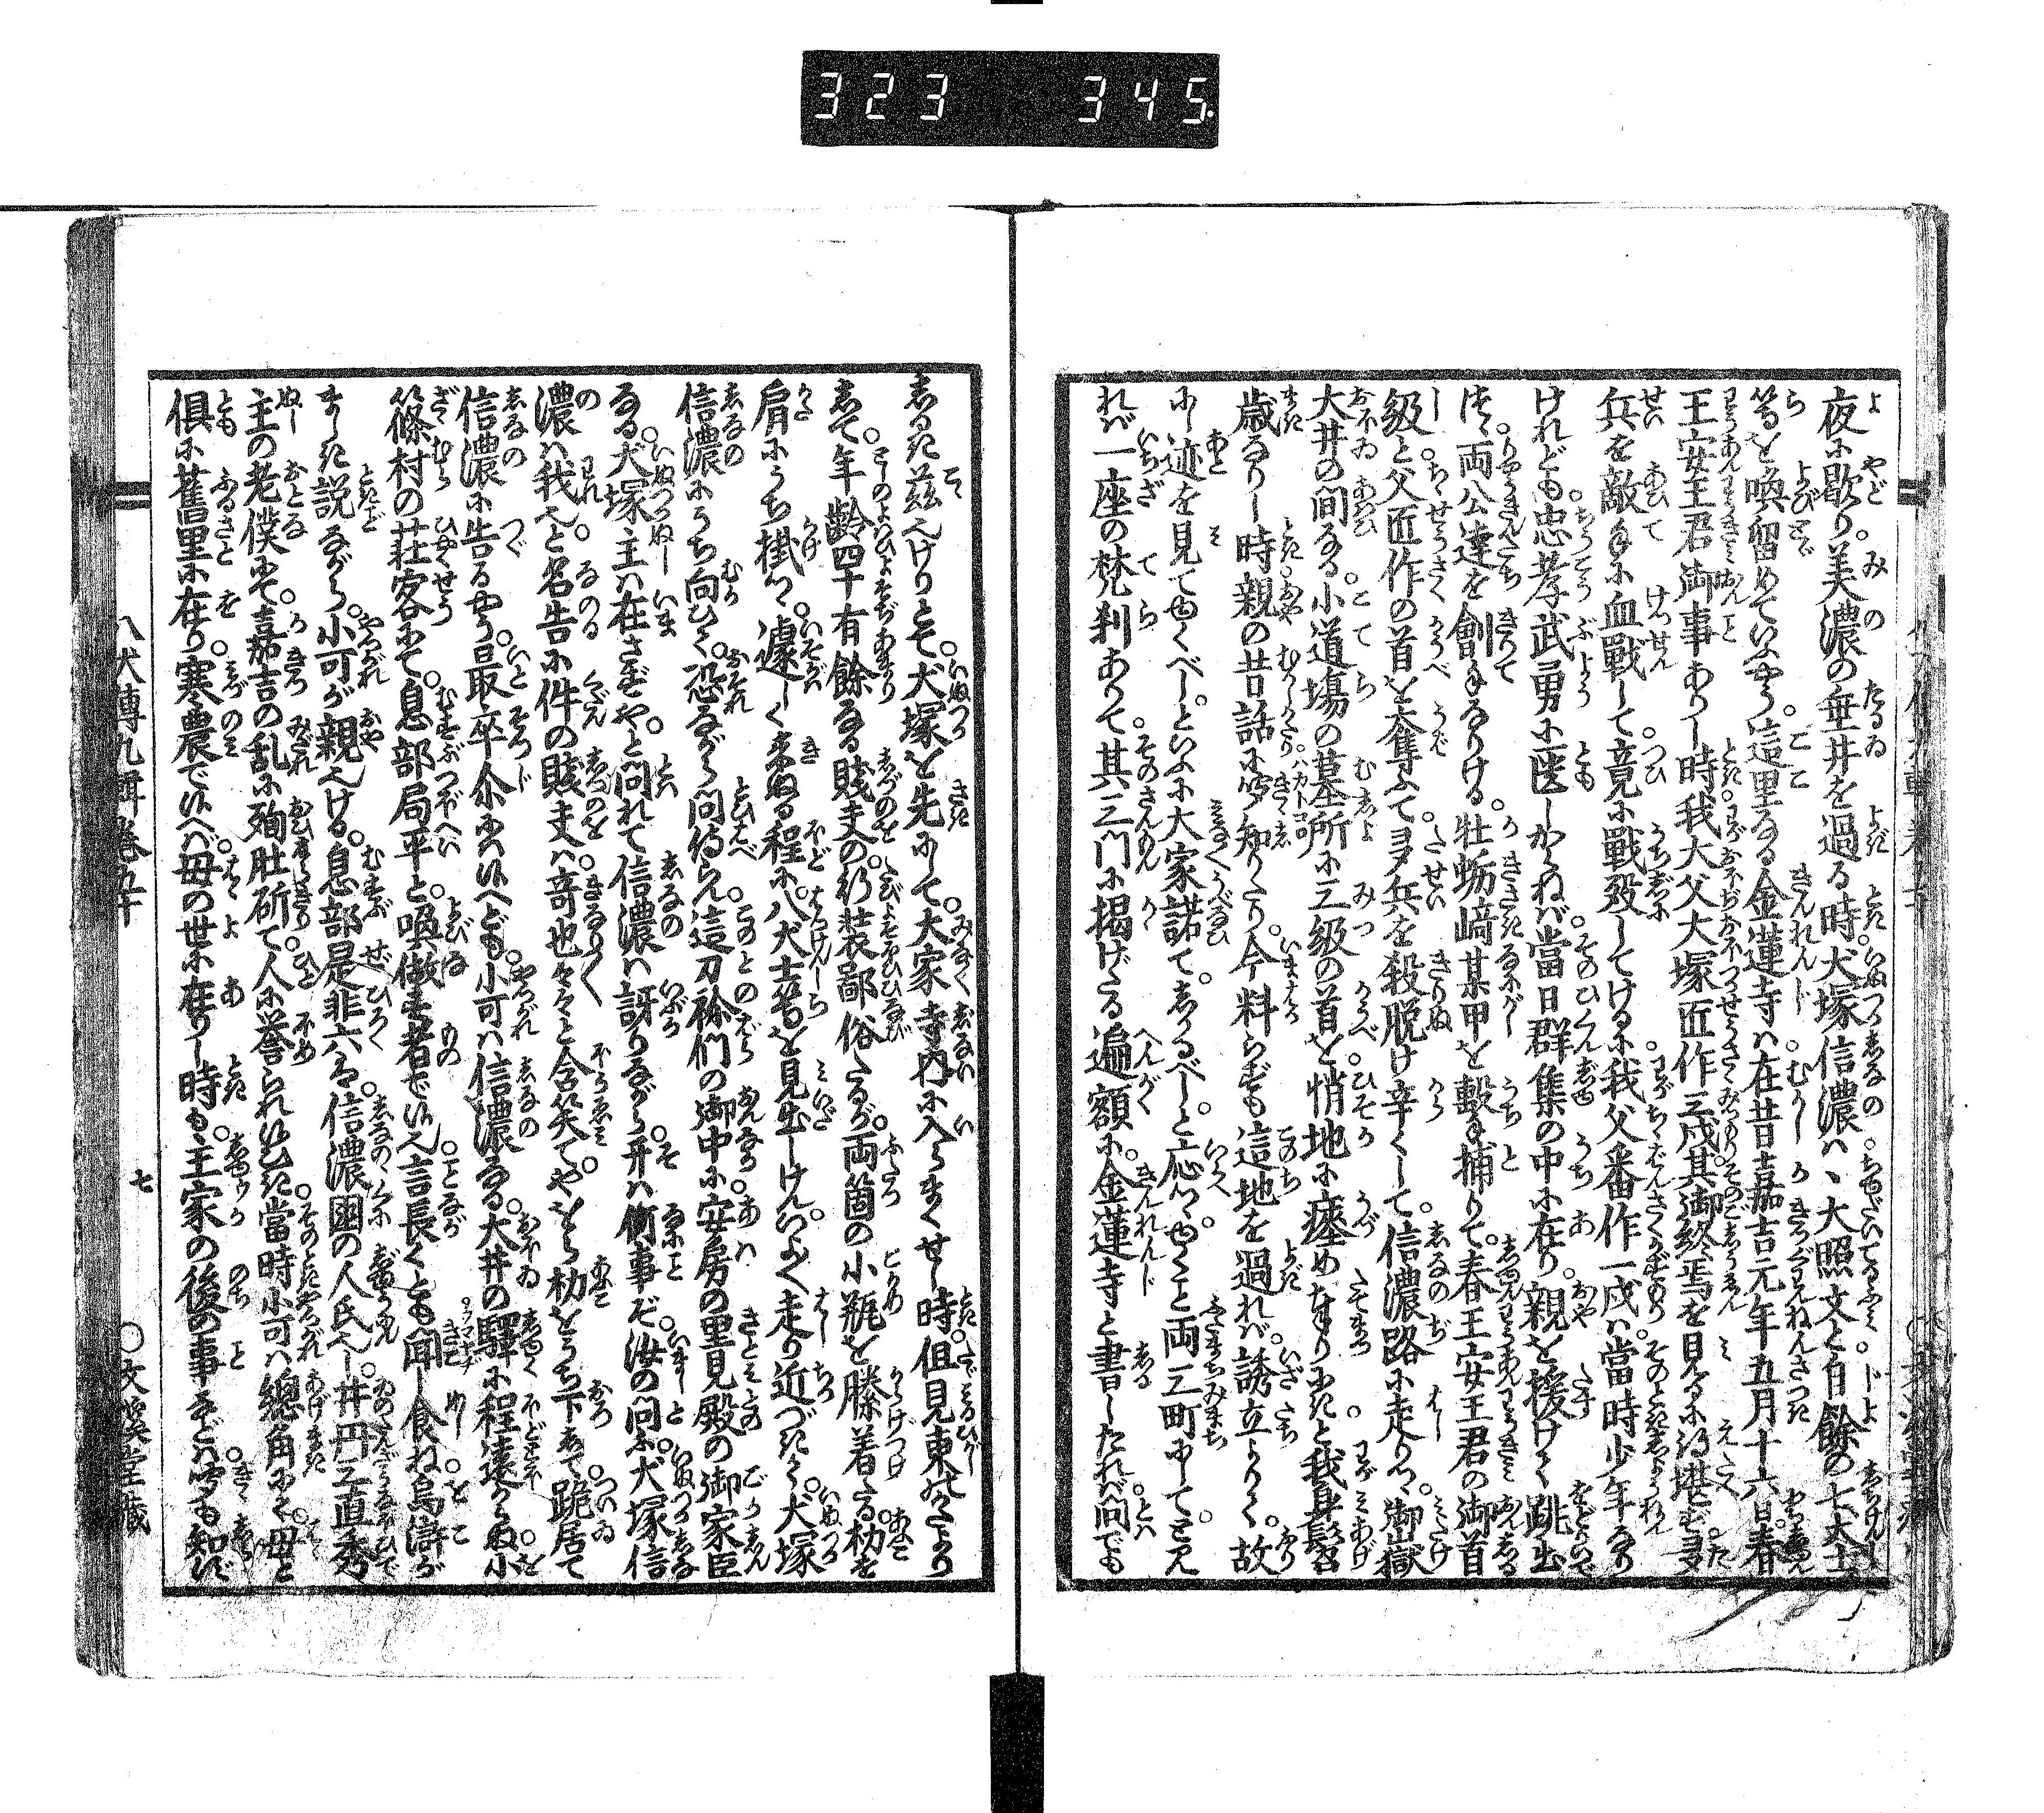 323 345.
夜に歇り。美濃の垂井を過る時。犬塚信濃は、大照文と自餘の七犬士
等を喚留めていふやう。這里なる金蓮寺は。在昔嘉吉元年五月十六日。春
王安王君御事ありし時。我大父大塚匠作三戍。其御終焉を見るに得堪ず。多
兵を敵手に血戰して。竟に戰歿してけるに。我父番作一戍は。當時少年なり
けれども。忠孝武勇に匱しからねば。當日群集の中に在り。親を援けて跳出
つゝ。両公達を劊手なりける。牡蛎﨑某甲を擊捕りて。春王安王君の御首
級と。父匠作の首を奪ふて。多兵を殺脱け辛くして。信濃路に走りつゝ。御嶽
大井の間なる。小道場の墓所に。三級の首を悄地に瘞めまゐりにきと。我身髫
歳なりし時。親の昔話に聞知りたり。今料らずも這地を過れば。誘立よりて。故
にし迹を見てゆくべし。といふに大家諾て。しかるべし。と応つゝ。ゆくこと両三町にして。と見
れば一座の梵刹ありて。其三門に掲げたる遍額に。金蓮寺と書したれば。問でも
しるき茲也けりとて。犬塚を先にして。大家寺内に入らまくせし時。但見東のかたより
して。年齢四十有餘なる賎夫の。行装鄙俗たるが。両箇の小瓶を縢着たる。朸を
肩にうち掛つゝ。遽しく来ぬる程に。八犬士等を見出しけん。いよゝ走り近づきて。犬塚
信濃にうち向ひて。恐ながら問侍らん。這刀祢們の御中に。安房の里見殿の御家臣
なる。犬塚主は在さずや。と問れて信濃は訝りながら。开は何事ぞ。汝の問ふ。犬塚信
濃は我也。と名告に件の賤夫は。奇也々々と含笑て。やをら朸をうち下して。跪居て
信濃に告るやう。最卒尒には候へども。小可は信濃なる。大井の驛に程遠からぬ。小
篠村の荘客にて。息部局平と。喚做す者で候也。言長くとも聞し食ね。烏滸が
ましき説ながら。小可が親也ける。息部是非六は。信濃国の人氏也し。井丹三直秀
主の老僕にて。嘉吉の乱に殉肚斫て。人に誉られ候ひき。當時小可は總角にて。母と
倶に舊里に在り。寒農で候へば。母の世に在りし時も。主家の後の事などは。聞も知ず
八犬傳九輯巻五十
七
○文溪堂藏